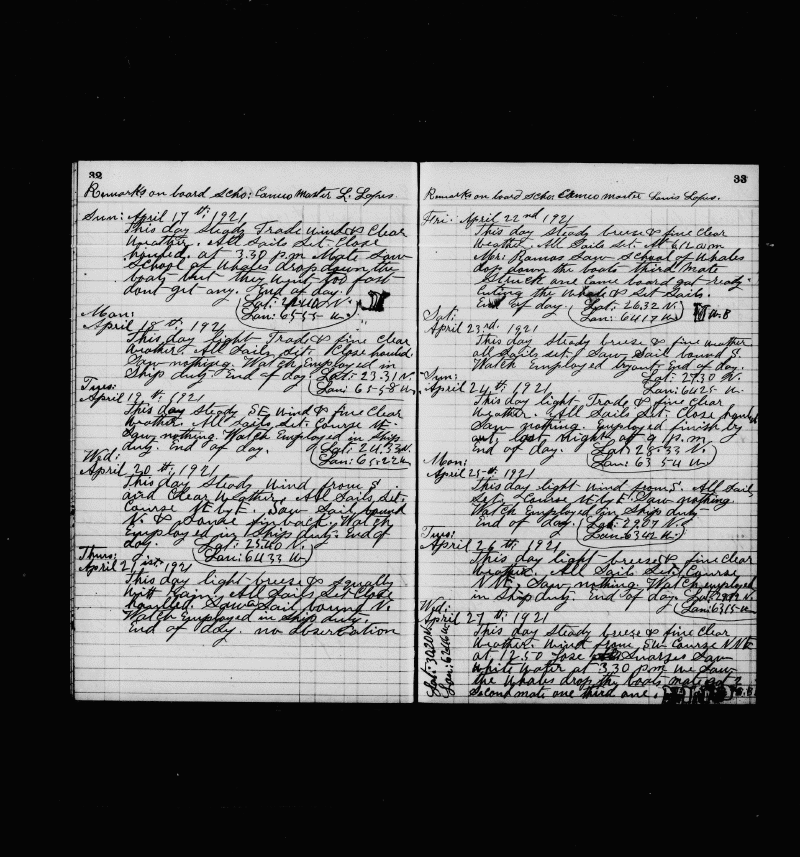 32
Remarks on board Scho: Cameo Master L. Lopes.
Sun: April 17th, 1921
This day Steady Trade winds & Clear
Weather. All Sails Set. Close
hauled. at 3.30 P.M. Mate Saw
School of Whales drop down the
boats but they went too fast
dont get any. End of day.
Lat:
Lon: 65-55 W.
Mon:
April 18th, 1921
This day light Trade & fine Clear
Weather. All Sails Set. Close hauled.
Saw nothing. Watch Employed in
Ship duty End of day
Lat: 23.31 N.
Lon: 65-58 W.
Tues:
April 19th, 1921
This day Steady SE wind & fine Clear
Weather. All Sails Set. Course N.
Saw nothing. Watch Employed in Ship
duty. End of day.
Lat: 24.33 N.
Lon: 65.22 W.
Wed:
April 20th, 1921
This day Steady wind from S.
and Clear Weather. All Sails Set.
Course N by E. Saw Sail bound
N. & finback. Watch
Employed in Ship duty. End of
day.
Lat: 25.40 N.
Lon: 64 33 W.
Thurs:
April 21st 1921
This day light breeze & Squally
with rain. All Sails Set Close
haulled. Saw a Sail bound N.
Watch Employed in Ship duty.
End of day. no observation
33
Remarks on board Scho. Cameo Master Louis Lopes.
Fri: April 22nd 1921
This day Steady breeze & fine Clear
Weather. All Sails Set. At 6/20 a.m
Mr: Ramos Saw School of Whales
drop down the boats third mate
Struck and Came board got ready
Cuting the Whale & Set Sails.
End of day.
Lat: 26.32 N.
Lon: 64 17 W.
Sat:
April 23rd. 1921
This day Steady breeze & fine weather
all Sails Set. Saw Sail bound S.
Watch Employed End of day.
Lat: 27.30 N.
Lon: 64 25 W.
Sun:
April 24th, 1921
This day light Trade & fine Clear
Weather. All Sails Set. Close hauled
Saw nothing. Employed finish
last night at 9 P.M.
End of day.
Lat: 28-33 N.
Lon: 63 54 W.
Mon:
April 25th, 1921
This day light wind from S. All Sail
Set. Course N by E. Saw nothing
Watch Employed in Ship duty
End of day.
Lat: 29.07 N.
Lon: 63 42 W.
Tues:
April 26th, 1921
This day light breeze & fine Clear
Weather. All Sails Set. Course
NNE. Saw nothing. Watch employed
in Ship duty. End of day
Lon: 63 15 W.
Wed:
April 27th, 1921
This day Steady breeze & fine Clear
Weather. Wind from SW Course NNE
at 12:50 Jose Saw
White Water at 3.30 P.M. we Saw
the Whales drop the boats mate got 2
Second mate one third one.
Lat: 30.20 N.
Lon: